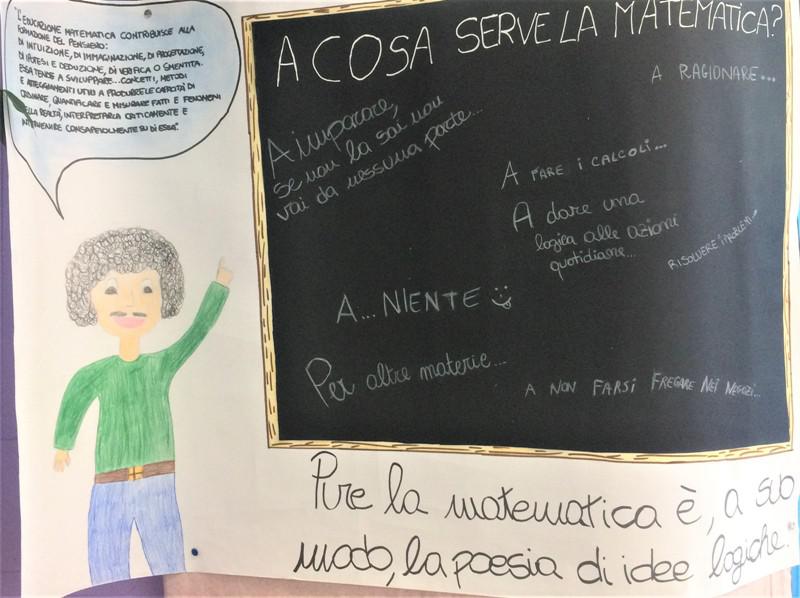 "L'EDUCAZIONE MATEMATICA CONTRIBUISCE ALLA
FORMAZIONE DEL PENSIERO:
DI INTUIZIONE, DI IMMAGINAZIONE, DI PROGETTAZIONE,
DI IPOTESI E DEDUZIONE, DI VERIFICA O SMENTITA.
ESSA TENDE A SVILUPPARE...CONCETTI, METODI
E ATTEGGIAMENTI UTILI A PRODURRE LE CAPACITÀ DI
ORDINARE, QUANTIFICARE E MISURARE FATTI E FENOMENI
DELLA REALTÀ, INTERPRETARLA CRITICAMENTE E
INTERVENIRE CONSAPEVOLMENTE SU DI ESSA".
A COSA SERVE LA MATEMATICA?
A RAGIONARE...
A imparare,
se non la sai non
vai da nessuna parte...
A FARE I CALCOLI...
A dare una
logica alle azioni
quotidiane...
RISOLVERE I PROBLEMI...
A... NIENTE
Per altre materie...
A NON FARSI FREGARE NEI NEGOZI...
Pure la matematica è, a suo
modo, la poesia di idee logiche.